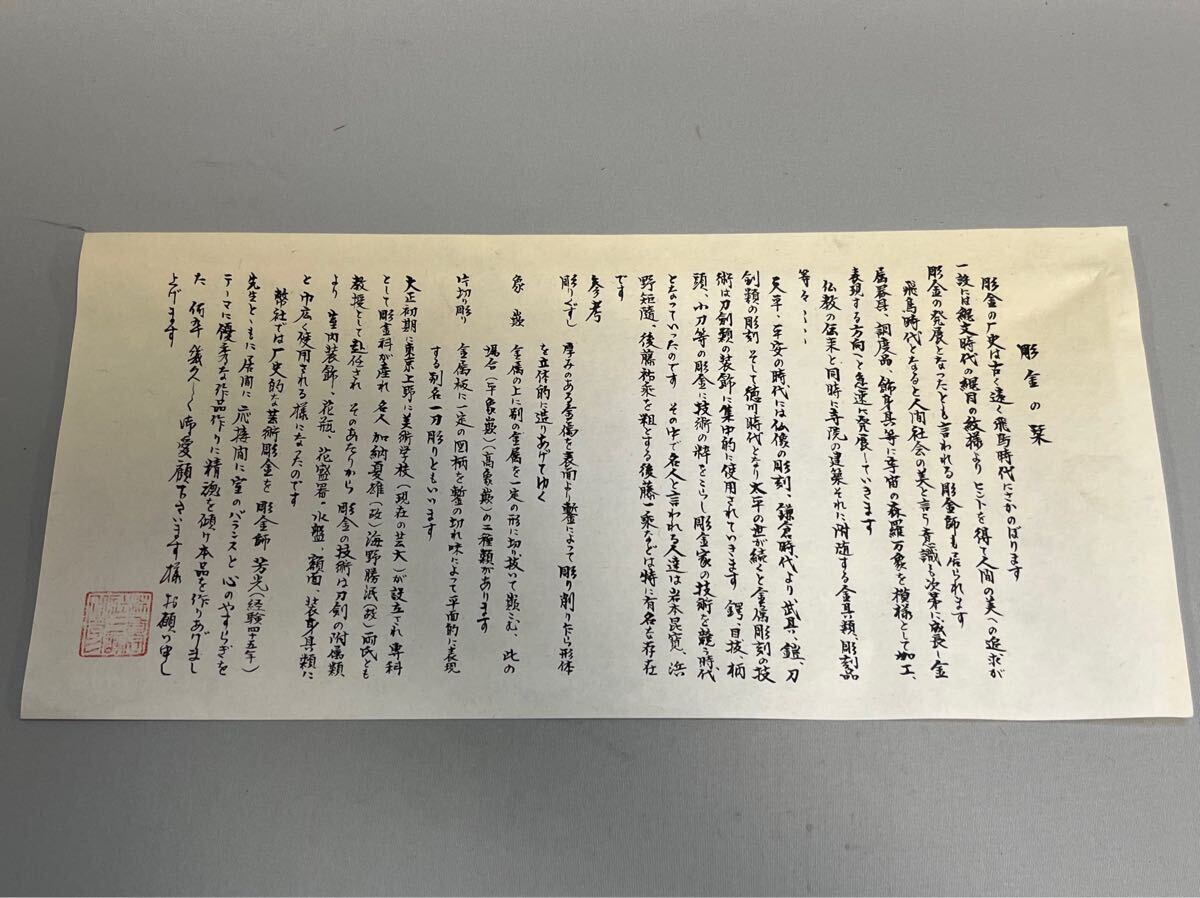 彫金の栞
彫金の厂史は古く遠く飛鳥時代にさかのぼります
一説には縄文時代の縄目の紋様よりヒントを得て人間の美への追求が
彫金の発展となったとも言われる彫金師も居られます
飛鳥時代となると人間社会の美と言う意識も次第に成長し金
属器具、調度品、飾身具、等に宇宙の森羅万象を模様として加工、
表現する方向へと急速に発展していきます
仏教の伝来と同時に寺院の建築それに附随する金具類、彫刻品
等々、、、、
天平、平安の時代には仏像の彫刻、鎌倉時代より武具、鎧、刀
剣類の彫刻 そして徳川時代となり太平の世が続くと金属彫刻の技
術は刀剣類の装飾に集中的に使用されていきます 鍔、目抜、柄
頭、小刀等の彫金に技術の粋をこらし彫金家の技術を競う時代
となっていったのです その中で名人と言われる人達は岩本昆寛、浜
野矩随、後藤祐乗を祖とする後藤一乗などは特に有名な存在
です
参考
彫りくずし 厚みのある金属を表面より鏨によって彫り削り乍ら形体
を立体的に造りあげてゆく
象嵌 金属の上に別の金属を一定の形に切り抜いて嵌こむ、此の
場合(平象嵌)(高象嵌)の二種類があります
片切り彫り 金属板に一定の図柄を鏨の切れ味によって平面的に表現
する別名一刀彫りともいいます
大正初期に東京上野に美術学校(現在の芸大)が設立され専科
として彫金科が産れ名人加納夏雄(故)海野勝珉(故)両氏とも
教授として赴任され そのあたりから 彫金の技術は刀剣の附属類
より 室内装飾、花瓶、花盛器、水盤、額面、装身具類に
と巾広く使用される様になったのです
弊社では厂史的な芸術彫金を 彫金師 芳光(経験四十五年)
先生とともに居間に応接間に室のバランスと心のやすらぎを
テーマに優秀な作品作りに精魂を傾け本品を作りあげまし
た 何卒幾久しく御愛顧下さいます様お願い申し
上げます